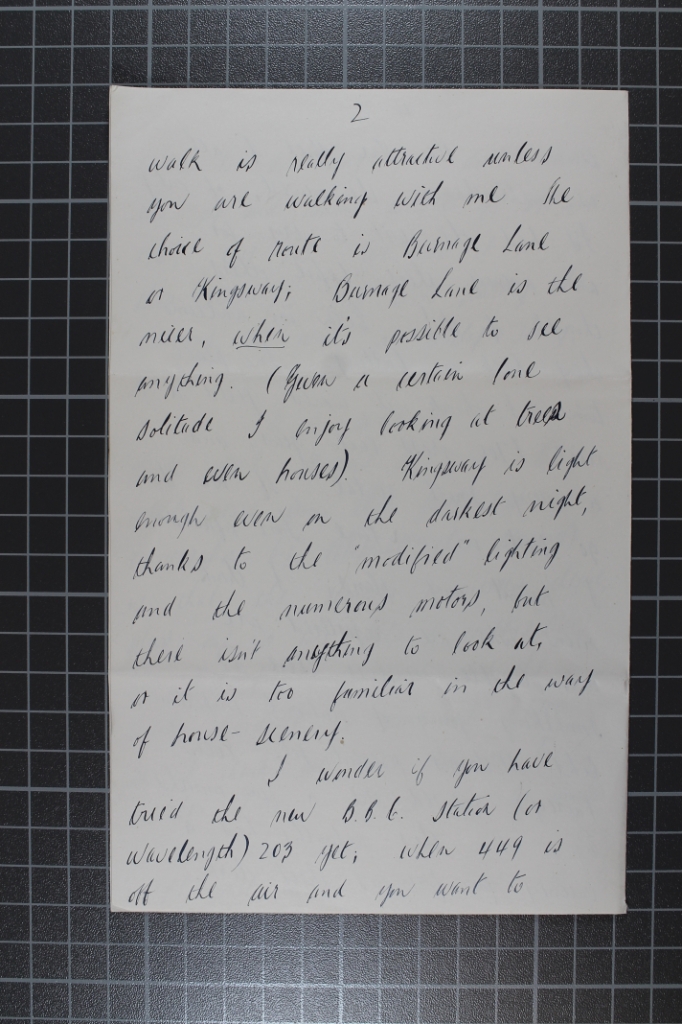 2
walk is really attractive unless
you are walking with me the
choice of route is Burnage Lane
or Kingsway; Burnage Lane is the
nicer, when it's possible to see
anything. (Given a certain lone
solitude I enjoy looking at trees
and even houses). Kingsway is light
enough even on the darkest night,
thanks to the "modified" lighting
and the numerous motors, but
there isn't anything to look at,
or it is too familiar in the way
of house-scenery.
I wonder if you have
tried the new B.B.C. station (or
wavelength) 203 yet; when 449 is
off the air and you want to